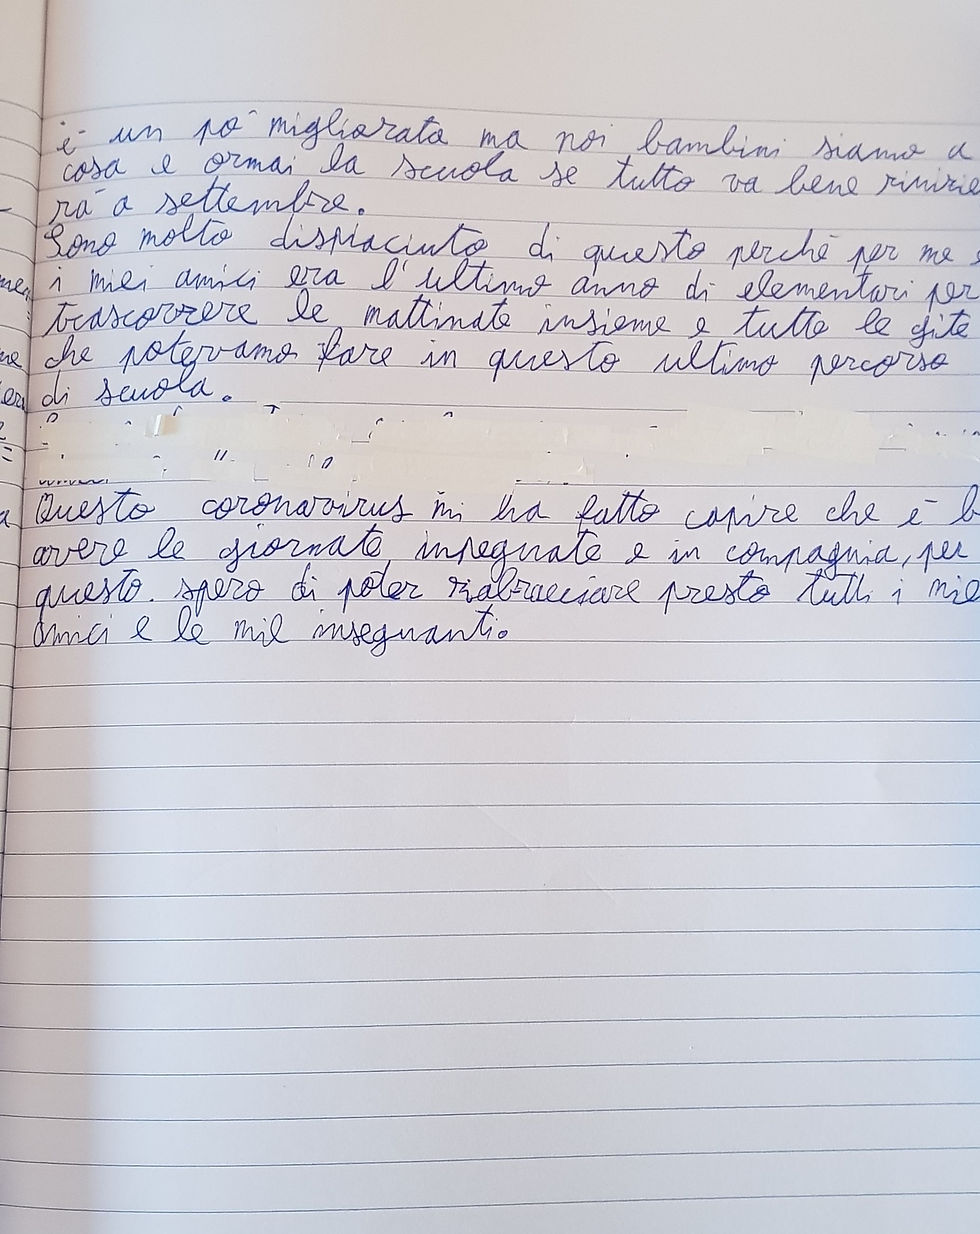 è un pò migliorata ma noi bambini siamo a
casa e ormai la scuola se tutto va bene rinizie
rà a settembre.
Sono molto dispiaciuto di questo perché per me e
i miei amici era l'ultimo anno di elementari per
trascorrere le mattinate insieme e tutte le gite
che potevamo fare in questo ultimo percorso
di scuola.
Questo coronavirus mi ha fatto capire che è b
avere le giornate impegnate e in compagnia, per
questo. spero di poter riabracciare presto tutti i mie
amici e le mie insegnanti.